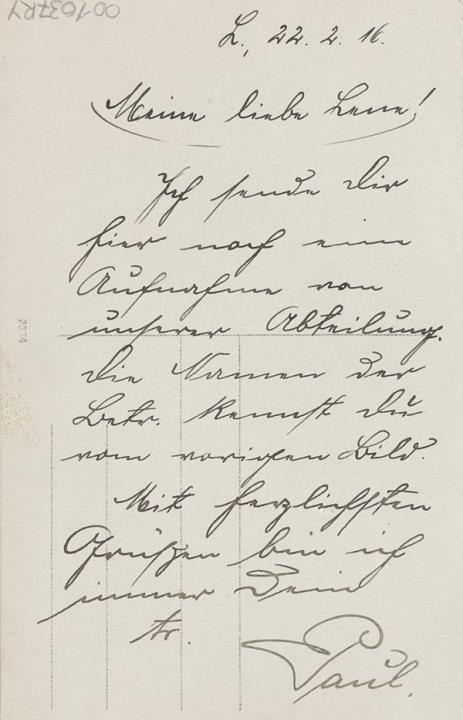 001037RY
L., 22. 2. 16.
Meine liebe Lene!
Ich sende Dir
hier noch eine
Aufnahme von
unserer Abteilung.
Die Namen der
Betr. kennst Du
vom vorigen Bild.
Mit herzlichsten
Grüßen bin ich
immer Dein
tr.
Paul.